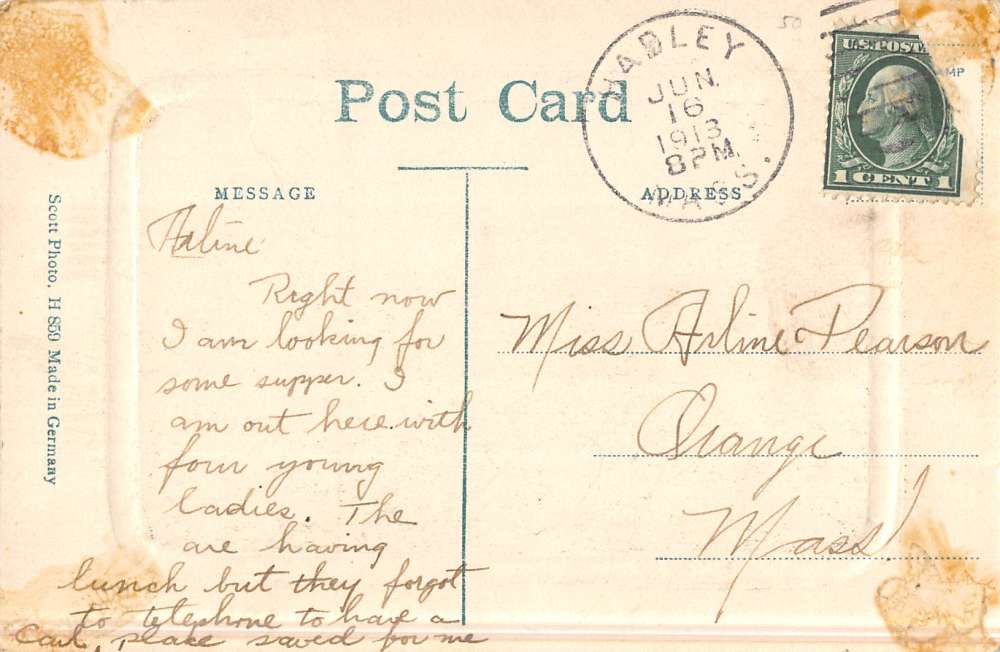 Post Card
HADLEY
JUN
16
1913
8 PM
MASS.
50
U.S. POSTA
1 CENT 1
AMP
MESSAGE
ADDRESS
Scott Photo, H 859 Made in Germany
Arline
Right now
I am looking for
some supper. I
am out here with
four young
ladies. The
are having
lunch but they forgot
to telephone to have a
place saved for me
Carl,
Miss Arline Pearson
Orange
Mass